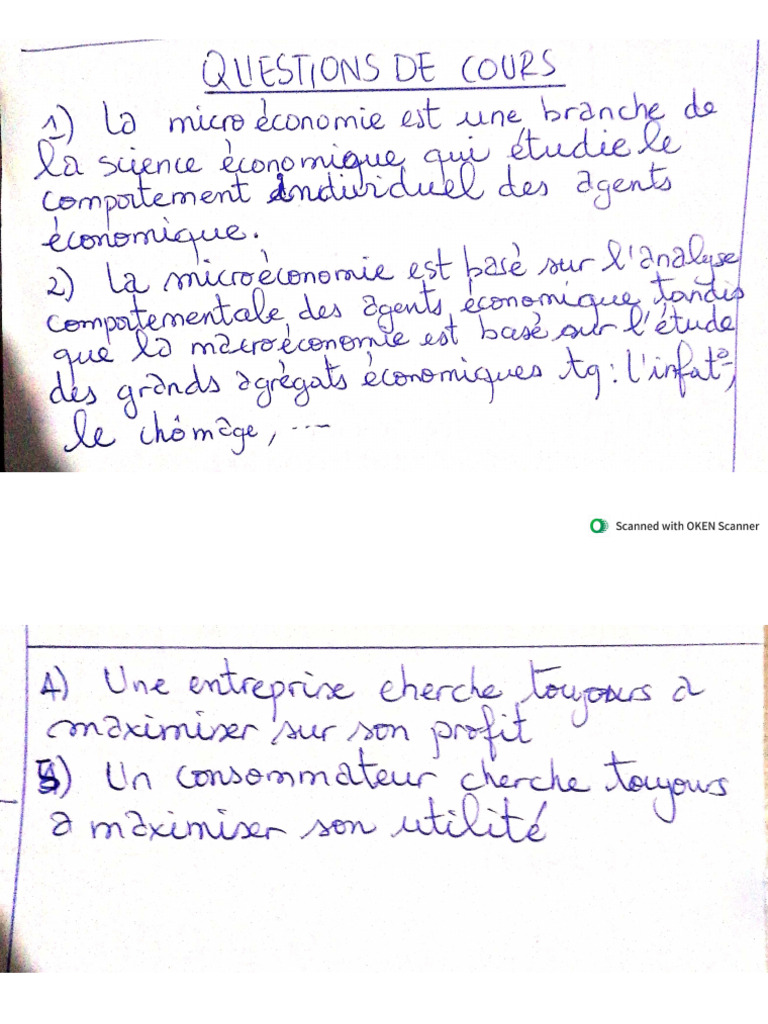 QUESTIONS DE COURS
1) La microéconomie est une branche de
la science économique qui étudie le
comportement individuel des agents
économique.
2) La microéconomie est basé sur l'analyse
comportementale des agents économique tandis
que la macroéconomie est basé sur l'étude
des grands agrégats économiques tq : l'infat°,
le chômage, ...
Scanned with OKEN Scanner
4) Une entreprise cherche toujours a
maximiser sur son profit
5) Un consommateur cherche toujours
a maximiser son utilité